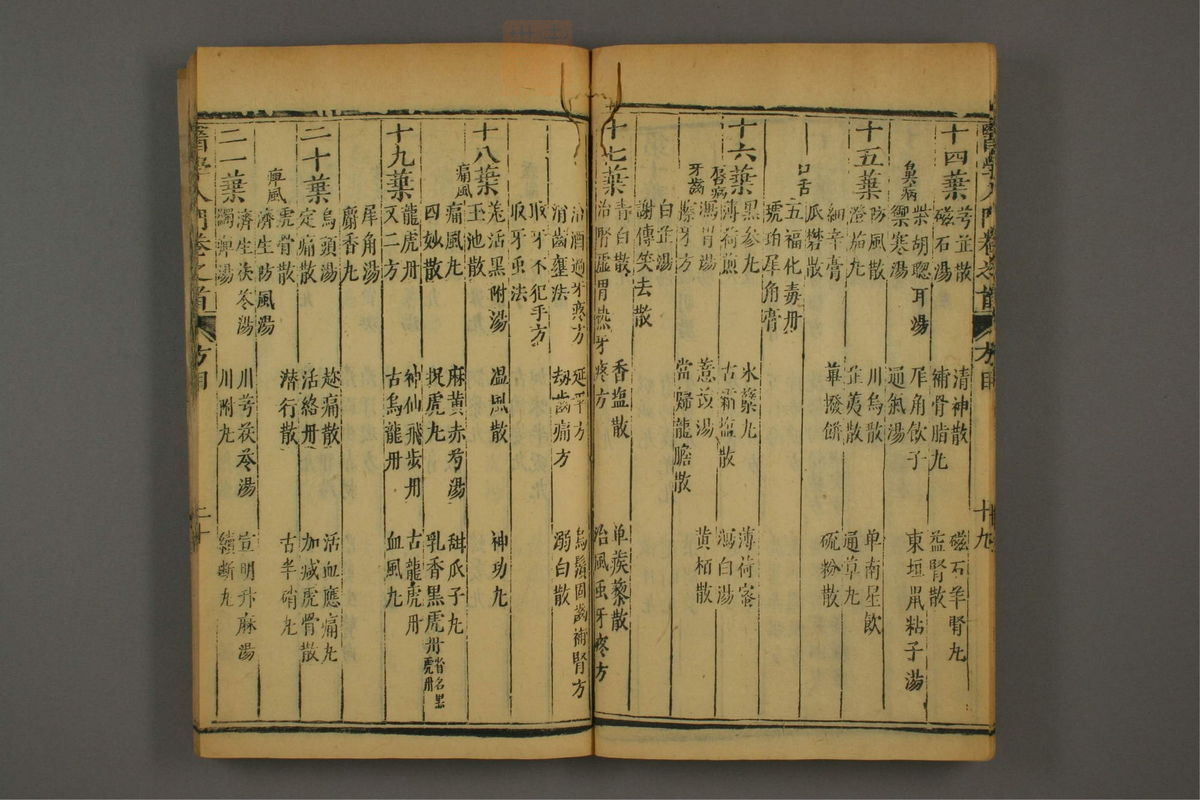 醫學入門卷之首 方目 十九
十四葉 芎芷散 清神散 磁石羊腎丸
磁石湯 補骨脂丸 益腎散
柴胡聰耳湯 犀角飲子 東垣鼠粘子湯
鼻病 禦寒湯 通氣湯
十五葉 防風散 川烏散 單南星飲
澄茄丸 芷荑散 通草丸
細辛膏
瓜礬散 蓽撥餅 硫粉散
口舌 五福化毒丹
琥珀犀角膏
十六葉 黑參丸 氷蘗丸 薄荷蜜
薄荷煎 古霜鹽散 瀉白湯
唇病 瀉胃湯 薏苡湯 黃栢散
牙齒 擦牙方 當歸龍膽散
白芷湯
謝傳笑去散
十七葉 青白散 香鹽散 单蒺藜散
治腎虛胃熱牙疼方 治風虫牙疼方
治酒過牙疼方 延平方 烏鬚固齒補腎方
消齒壅法 劫齒痛方 溺白散
取牙不犯手方
取牙虫法
十八葉 羗活黑附湯 温風散 神功丸
玉池散
痛風 痛風丸 麻黃赤芍湯 甜瓜子丸
四妙散 捉虎丸 乳香黑虎丹 省名黑虎丹
十九葉 龍虎丹 神仙飛步丹 古龍虎丹
又二方 古烏龍丹 血風丸
犀角湯
麝香丸
二十葉 烏頭湯 趂痛散 活血應痛丸
定痛散 活絡丹 加减虎骨散
虎骨散 潛行散 古半硝丸
痺風 濟生防風湯
二一葉 濟生茯苓湯 川芎茯苓湯 宣明升麻湯
蠲痺湯 川附丸 續斷丸
醫學入門卷之首 方目 二十